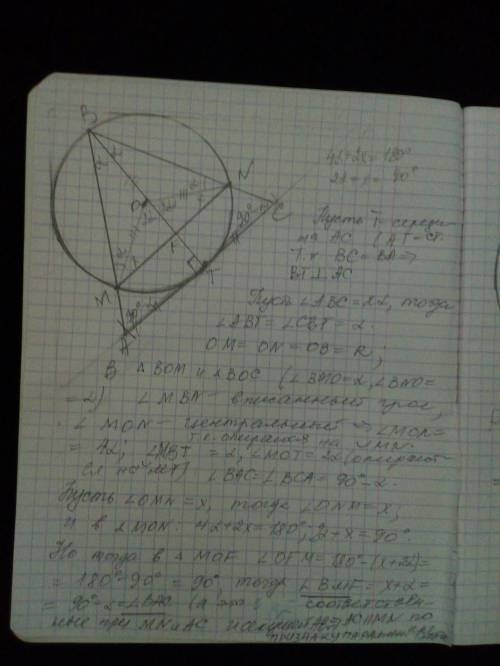 B
N
C
O
M
T
A
4α+2x=180°
2α+x=90°
Пусть T- середи-
на AC (AT=CT
Т.к BC=BA ⇒
BT⊥AC
Пусть ∠ABC=2α, тогда
∠ABT=∠CBT=α.
OM=ON=OB=R;
В ΔBOM и ΔBOC (∠BMO=α, ∠BNO=
=α) ∠MBN- вписанный угол,
∠MON- центральный ⇒ ∠MON=
т.к. опирается на MN
=4α, ∠MBT=α, ∠MOT=2α (опирает-
ся на MT) ∠BAC=∠BCA=90°-α.
Пусть ∠OMN=x, тогда ∠ONM=x,
и в ΔMON: 4α+2x=180°, 2α+x=90°.
Но тогда в ΔMOF ∠OFM=180°-(x+2α)=
=180°-90°=90°, тогда ∠BMF=x+α=
=90°-α=∠BAC (а это соответствен-
ные при MN и AC и секущей AB) ⇒ AC||MN по
признаку параллельности